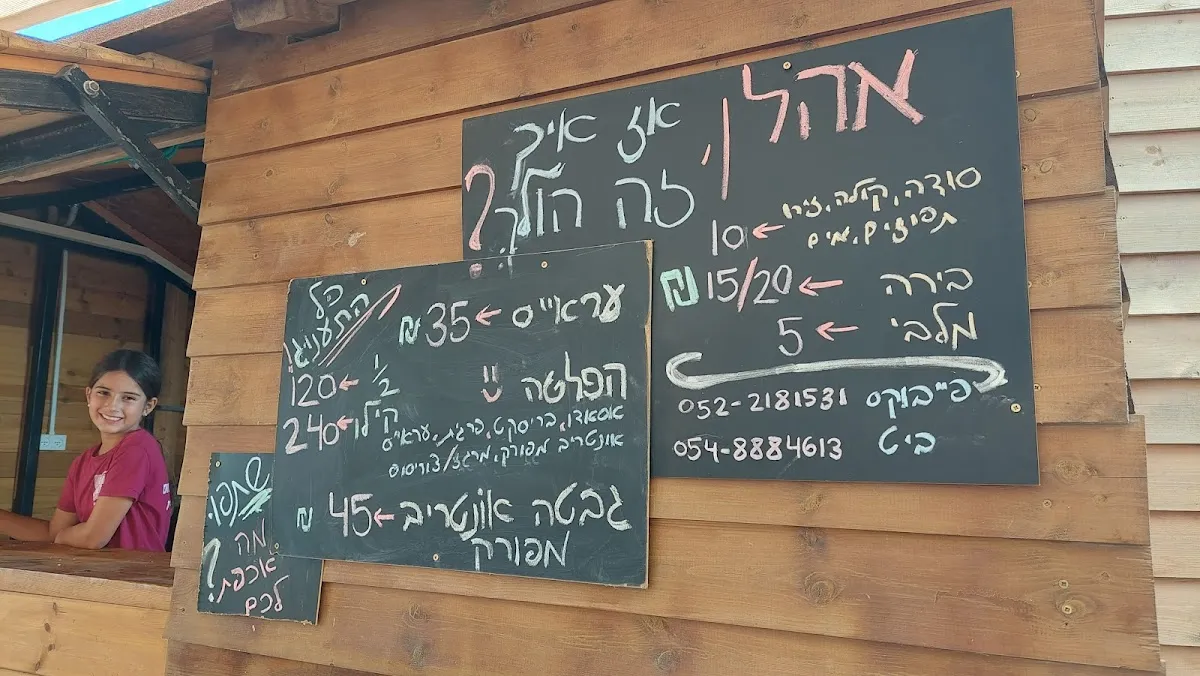 אהלן,
אז איך
זה הולך?
סודה, קולה, זירו
תפוזים, מים
10
בירה
15/20 ₪
מלבי
5
פייבוקס
052-2181531
ביט
054-8884613
עראייס
35 ₪
הפלטה
אסאדו, בריסקט, פרגית, עראייס
אונטריב מפורק, מרגז/צוריסוס
כל
התענוג!
1/2
120
קילו
240
גבטה אונטריב
מפורק
45 ₪
שתפו.
מה
אכפת
לכם?